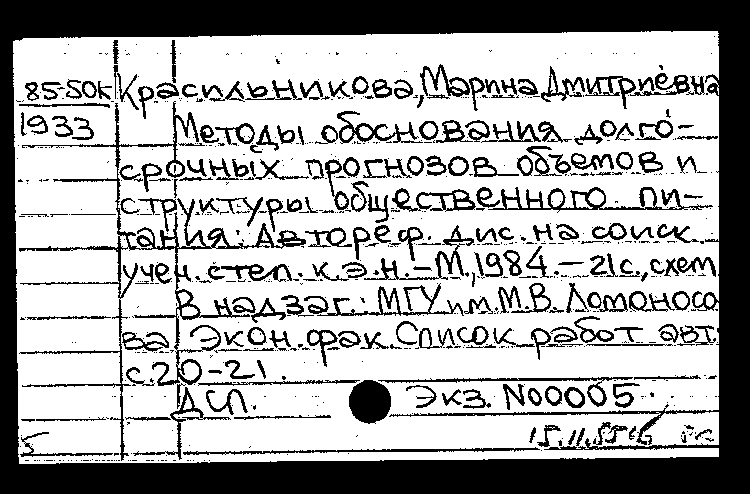 85-50к Красильникова, Марина Дмитриевна
1933 Методы обоснования долго-
срочных прогнозов объемов и
структуры общественного пи-
тания: Автореф. дис. на соиск.
учен. степ. к.э.н. - М., 1984. - 21 с., схем.
В надзаг.: МГУ им. М.В. Ломоносо
ва Экон. фак. Список работ авт.
с. 20-21.
ДСП. Экз. N00005.
5